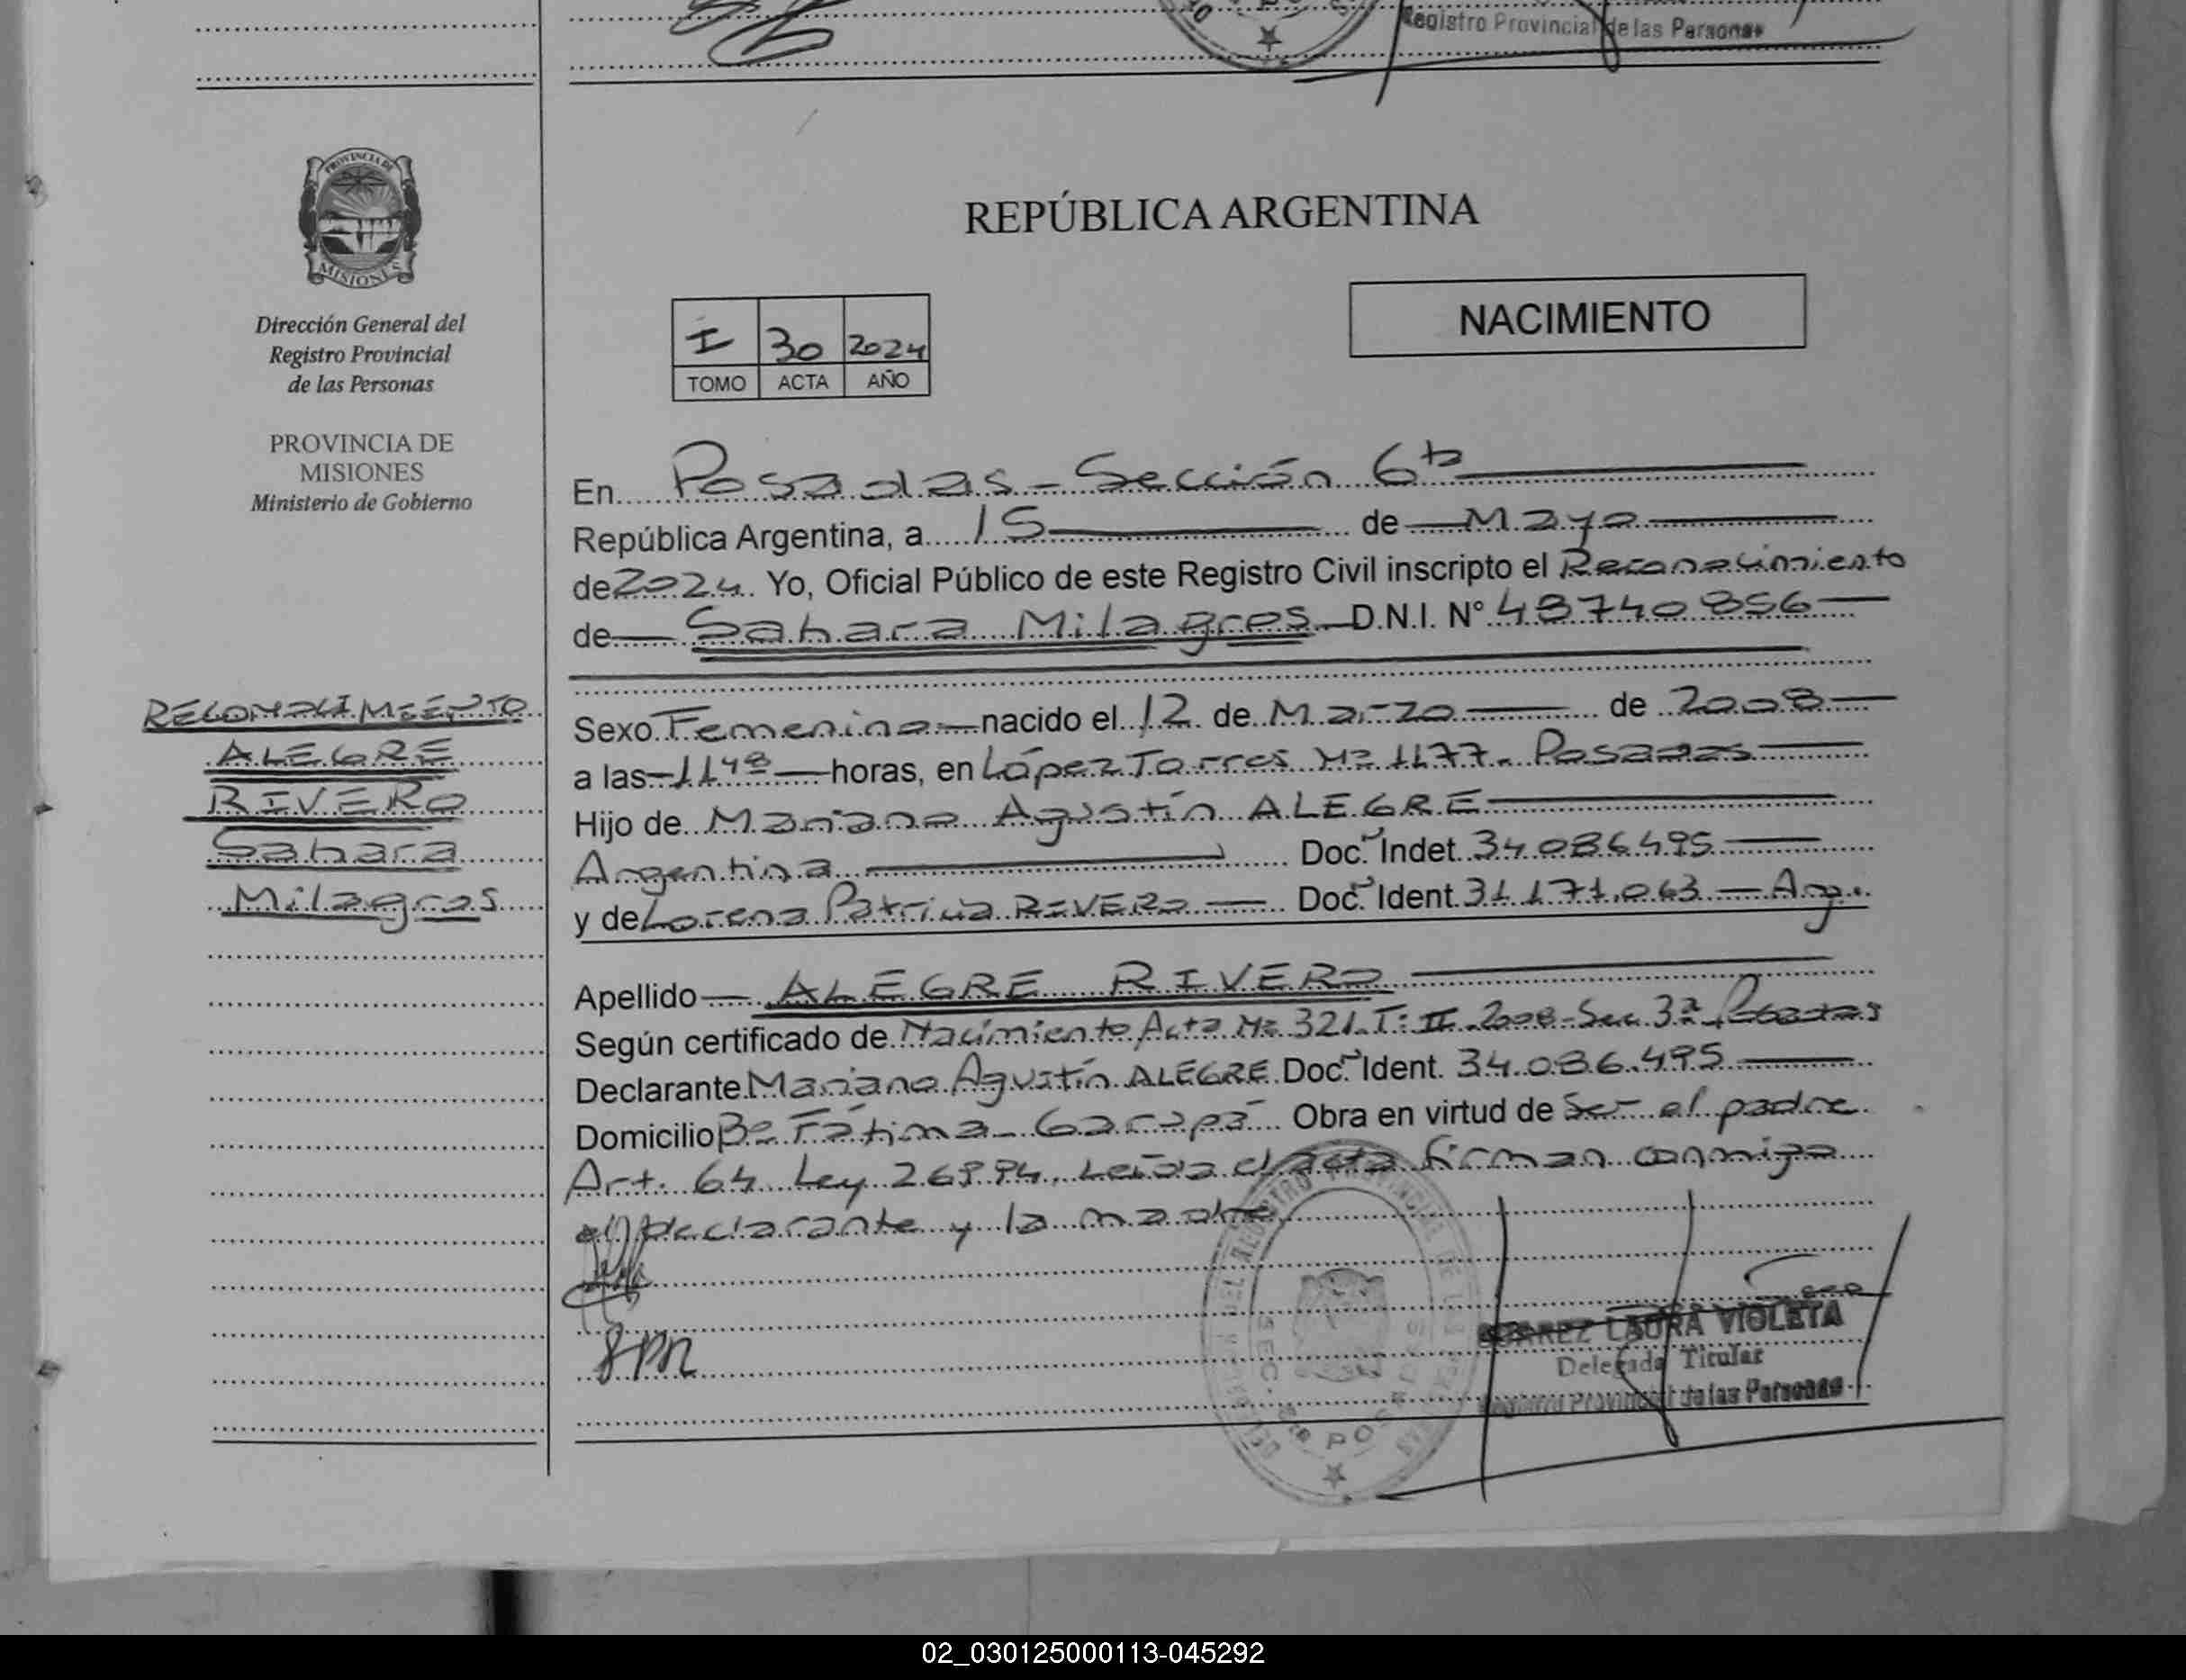 Registro Provincial de las Personas
PROVINCIA DE
MISIONES
Dirección General del
Registro Provincial
de las Personas
PROVINCIA DE
MISIONES
Ministerio de Gobierno
REPÚBLICA ARGENTINA
NACIMIENTO
I 30 2024
TOMO ACTA AÑO
En Posadas - Sección 6ta
República Argentina, a 15 de Mayo
de 2024. Yo, Oficial Público de este Registro Civil inscripto el Reconocimiento
de Sahara Milagros D.N.I. Nº 48740856
Sexo Femenino nacido el 12 de Marzo de 2008
a las 11 48 horas, en López Torres Nº 1177. Posadas
Hijo de Mariano Agustín ALEGRE
Argentina Doc. Indet. 34086495
y de Lorena Patricia RIVERO Doc. Ident. 31.171.063 - Arg.
Apellido ALEGRE RIVERO
Según certificado de Nacimiento Acta Nº 321. T: II. 2008 - Sec. 3ª Posadas
Declarante Mariano Agustín ALEGRE Doc. Ident. 34.086.495
Domicilio Bº Fátima - Garupá Obra en virtud de Ser el padre
Art. 64 Ley 26994. Leída el acta firman conmigo
el declarante y la madre
RECONOCIMIENTO
ALEGRE
RIVERO
Sahara
Milagros
SUAREZ LAURA VIOLETA
Delegada Titular
Registro Provincial de las Personas
02_030125000113-045292